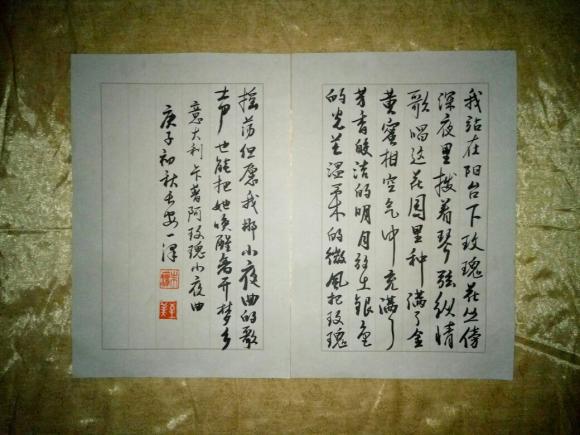 我站在阳台下玫瑰花丛傍
深夜里拨着琴弦纵情
歌唱这花园里种满了金
黄蜜柑空气中充满了
芳香皎洁的明月放出银色
的光芒温柔的微风把玫瑰
摇荡但愿我那小夜曲的歌
声也能把她唤醒离开梦乡
意大利卡普阿玫瑰小夜曲
庚子初秋长安一泽